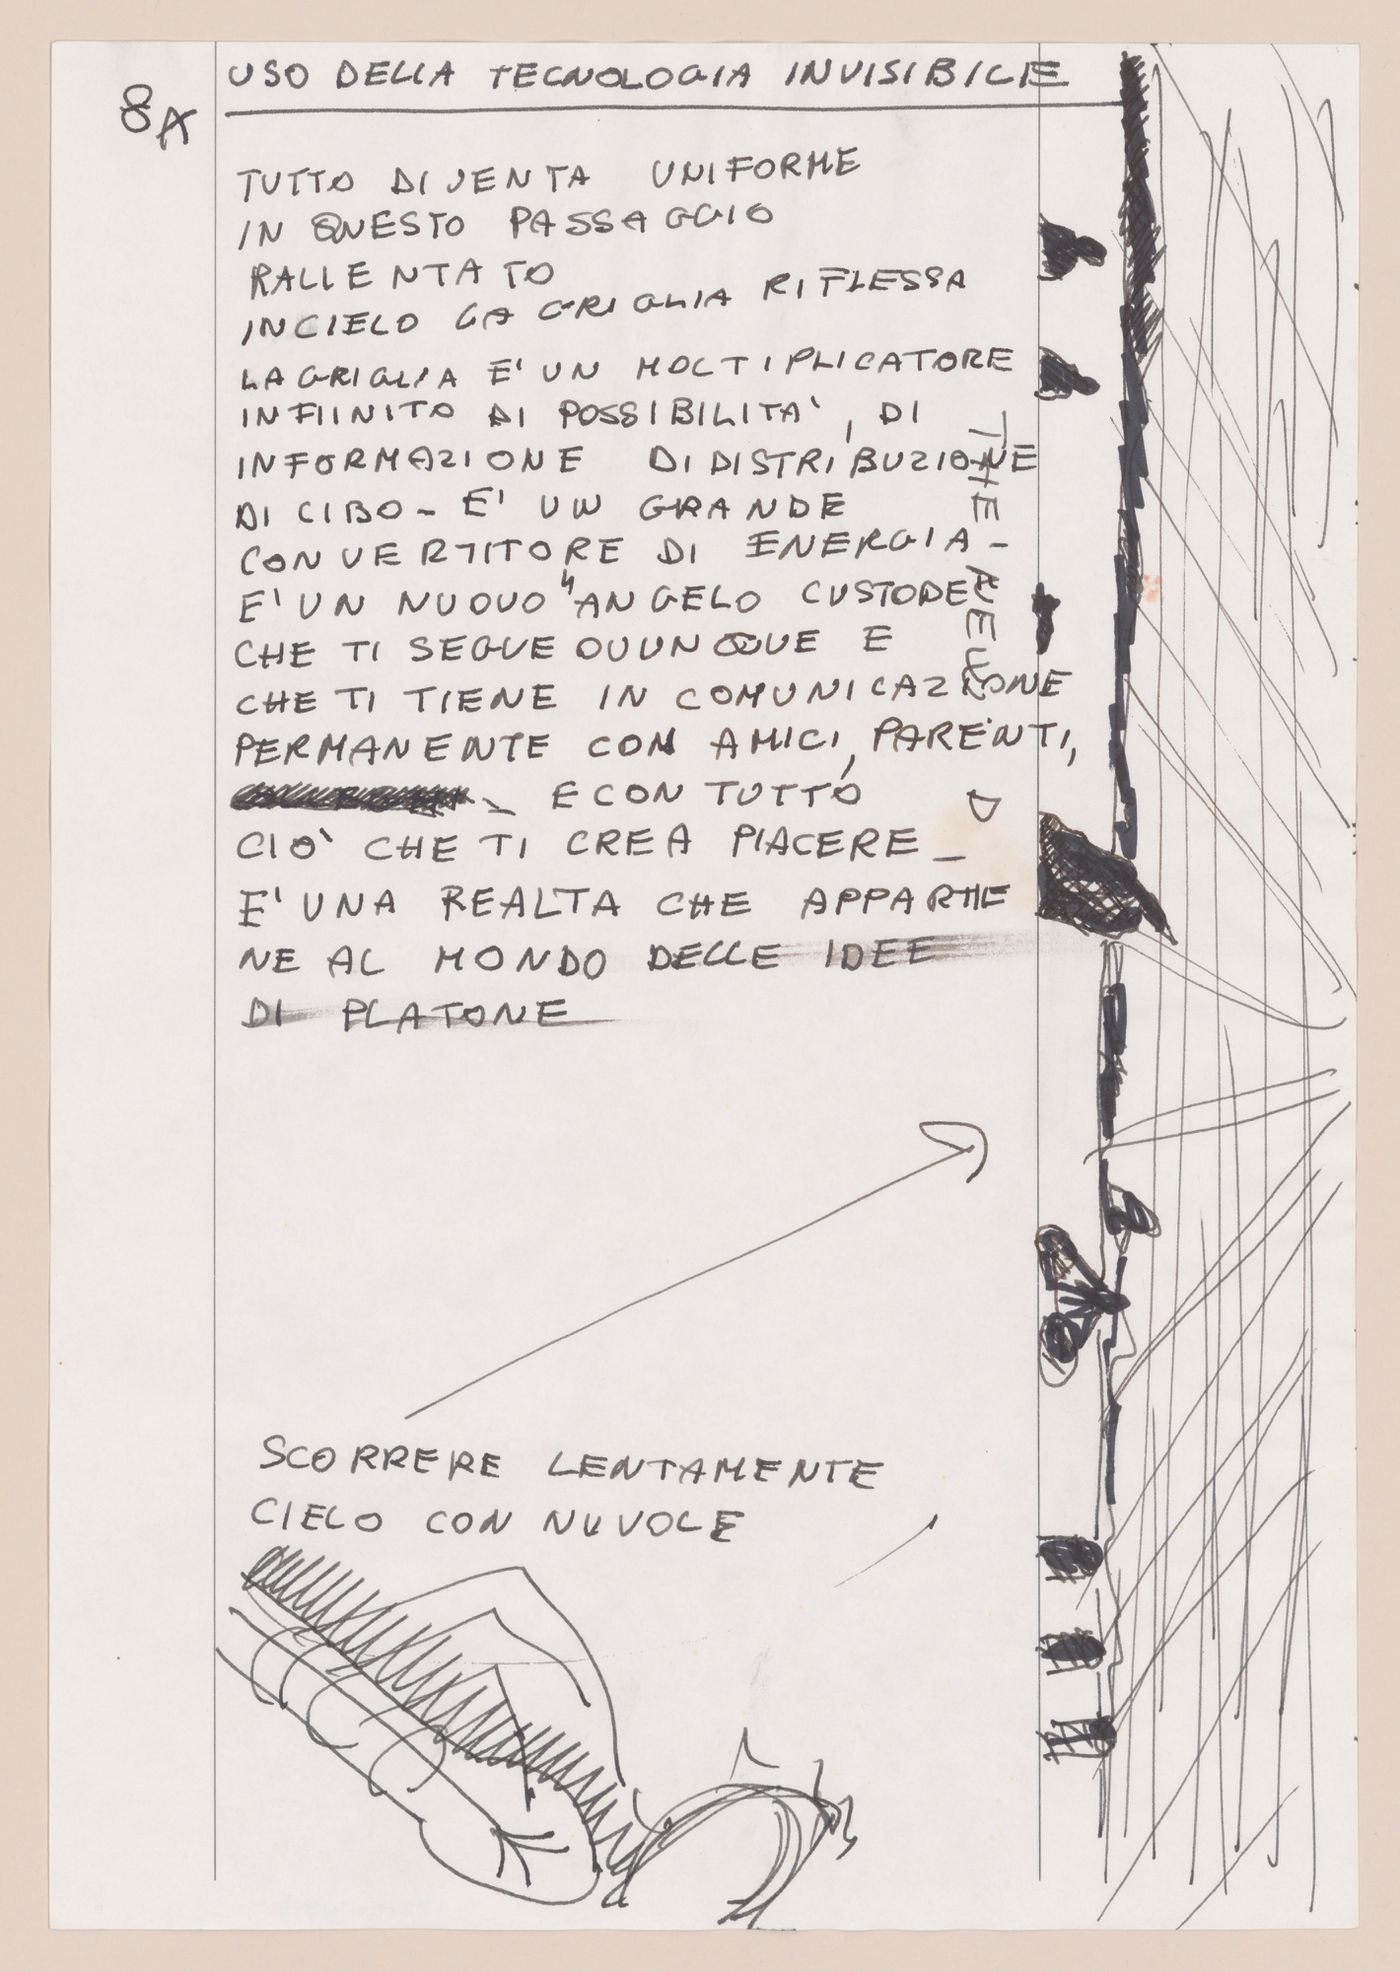 8A
USO DELLA TECNOLOGIA INVISIBILE
TUTTO DIVENTA UNIFORME
IN QUESTO PASSAGGIO
RALLENTATO
IN CIELO LA GRIGLIA RIFLESSA
LA GRIGLIA E' UN MOLTIPLICATORE
INFIINITO DI POSSIBILITA', DI
INFORMAZIONE DI DISTRIBUZIONE
DI CIBO - E' UN GRANDE
CONVERTITORE DI ENERGIA -
E' UN NUOVO "ANGELO CUSTODE"
CHE TI SEGUE OVUNQUE E
CHE TI TIENE IN COMUNICAZIONE
PERMANENTE CON AMICI, PARENTI,
- E CON TUTTO
CIO' CHE TI CREA PIACERE -
E' UNA REALTA CHE APPARTIE
NE AL MONDO DELLE IDEE
DI PLATONE
THE
SCORRERE LENTAMENTE
CIELO CON NUVOLE